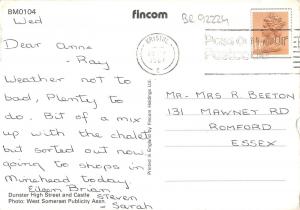 BM0104
fincom
BE 92224
Wed
Dear Anne
- Ray
Weather not to
bad, Plenty to
do. Bit of a mix
up with the chalet
but sorted out now
going to shops in
Minehead today
Eileen Brian
Steven
- Sarah
Dunster High Street and Castle
Photo: West Somerset Publicity Assn.
Printed in England by Fincom Holdings Ltd.
BRISTOL
MR - MRS R. BEETON
131 MAWNEY RD
ROMFORD
ESSEX